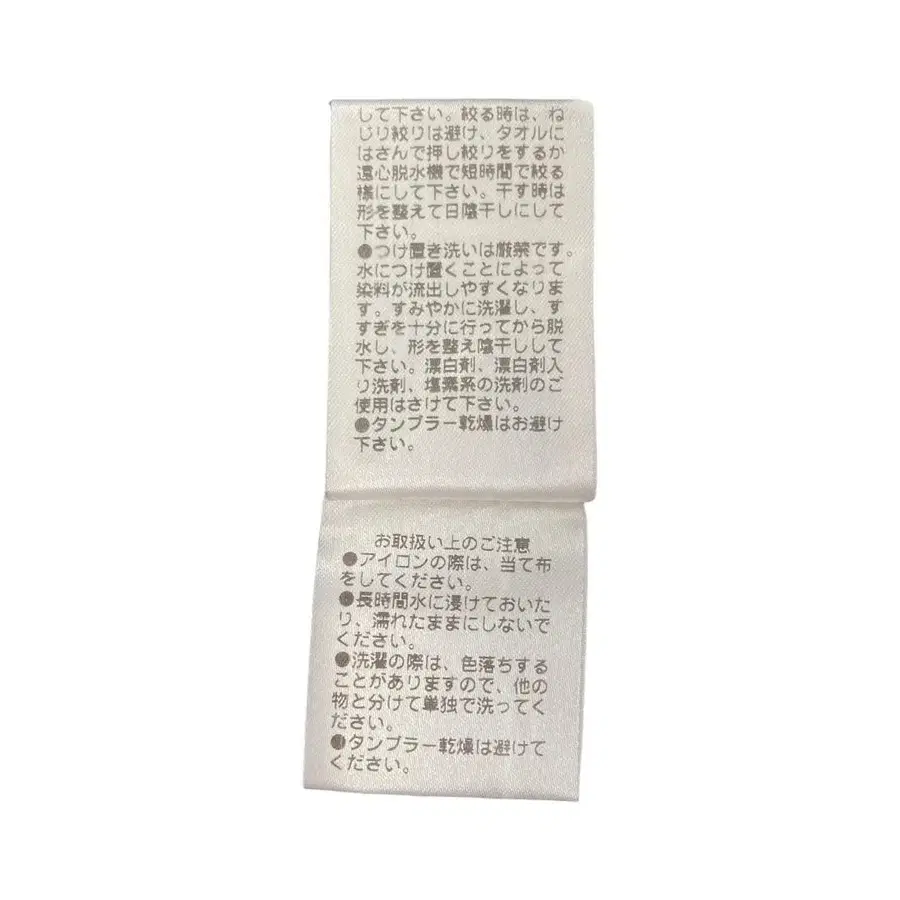 して下さい。絞る時は、ね
じり絞りは避け、タオルに
はさんで押し絞りをするか
遠心脱水機で短時間で絞る
様にして下さい。干す時は
形を整えて日陰干しにして
下さい。
●つけ置き洗いは厳禁です。
水につけ置くことによって
染料が流出しやすくなりま
す。すみやかに洗濯し、す
すぎを十分に行ってから脱
水し、形を整え陰干しして
下さい。漂白剤、漂白剤入
り洗剤、塩素系の洗剤のご
使用はさけて下さい。
●タンブラー乾燥はお避け
下さい。
お取扱い上のご注意
●アイロンの際は、当て布
をしてください。
●長時間水に浸けておいた
り、濡れたままにしないで
ください。
●洗濯の際は、色落ちする
ことがありますので、他の
物と分けて単独で洗ってく
ださい。
●タンブラー乾燥は避けて
ください。